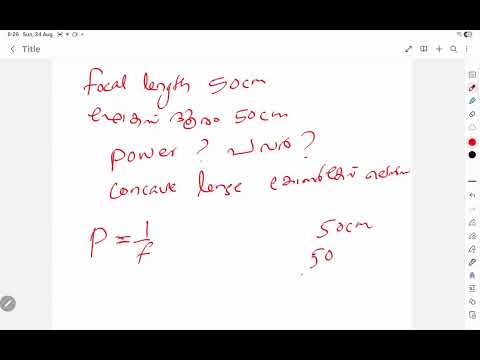 8:28 Sun, 24 Aug
Title
focal length 50cm
ഫോക്കസ് ദൂരം 50cm
power ? പവർ ?
concave lense കോൺകേവ് ലെൻസ്
P = 1/f
50cm
50